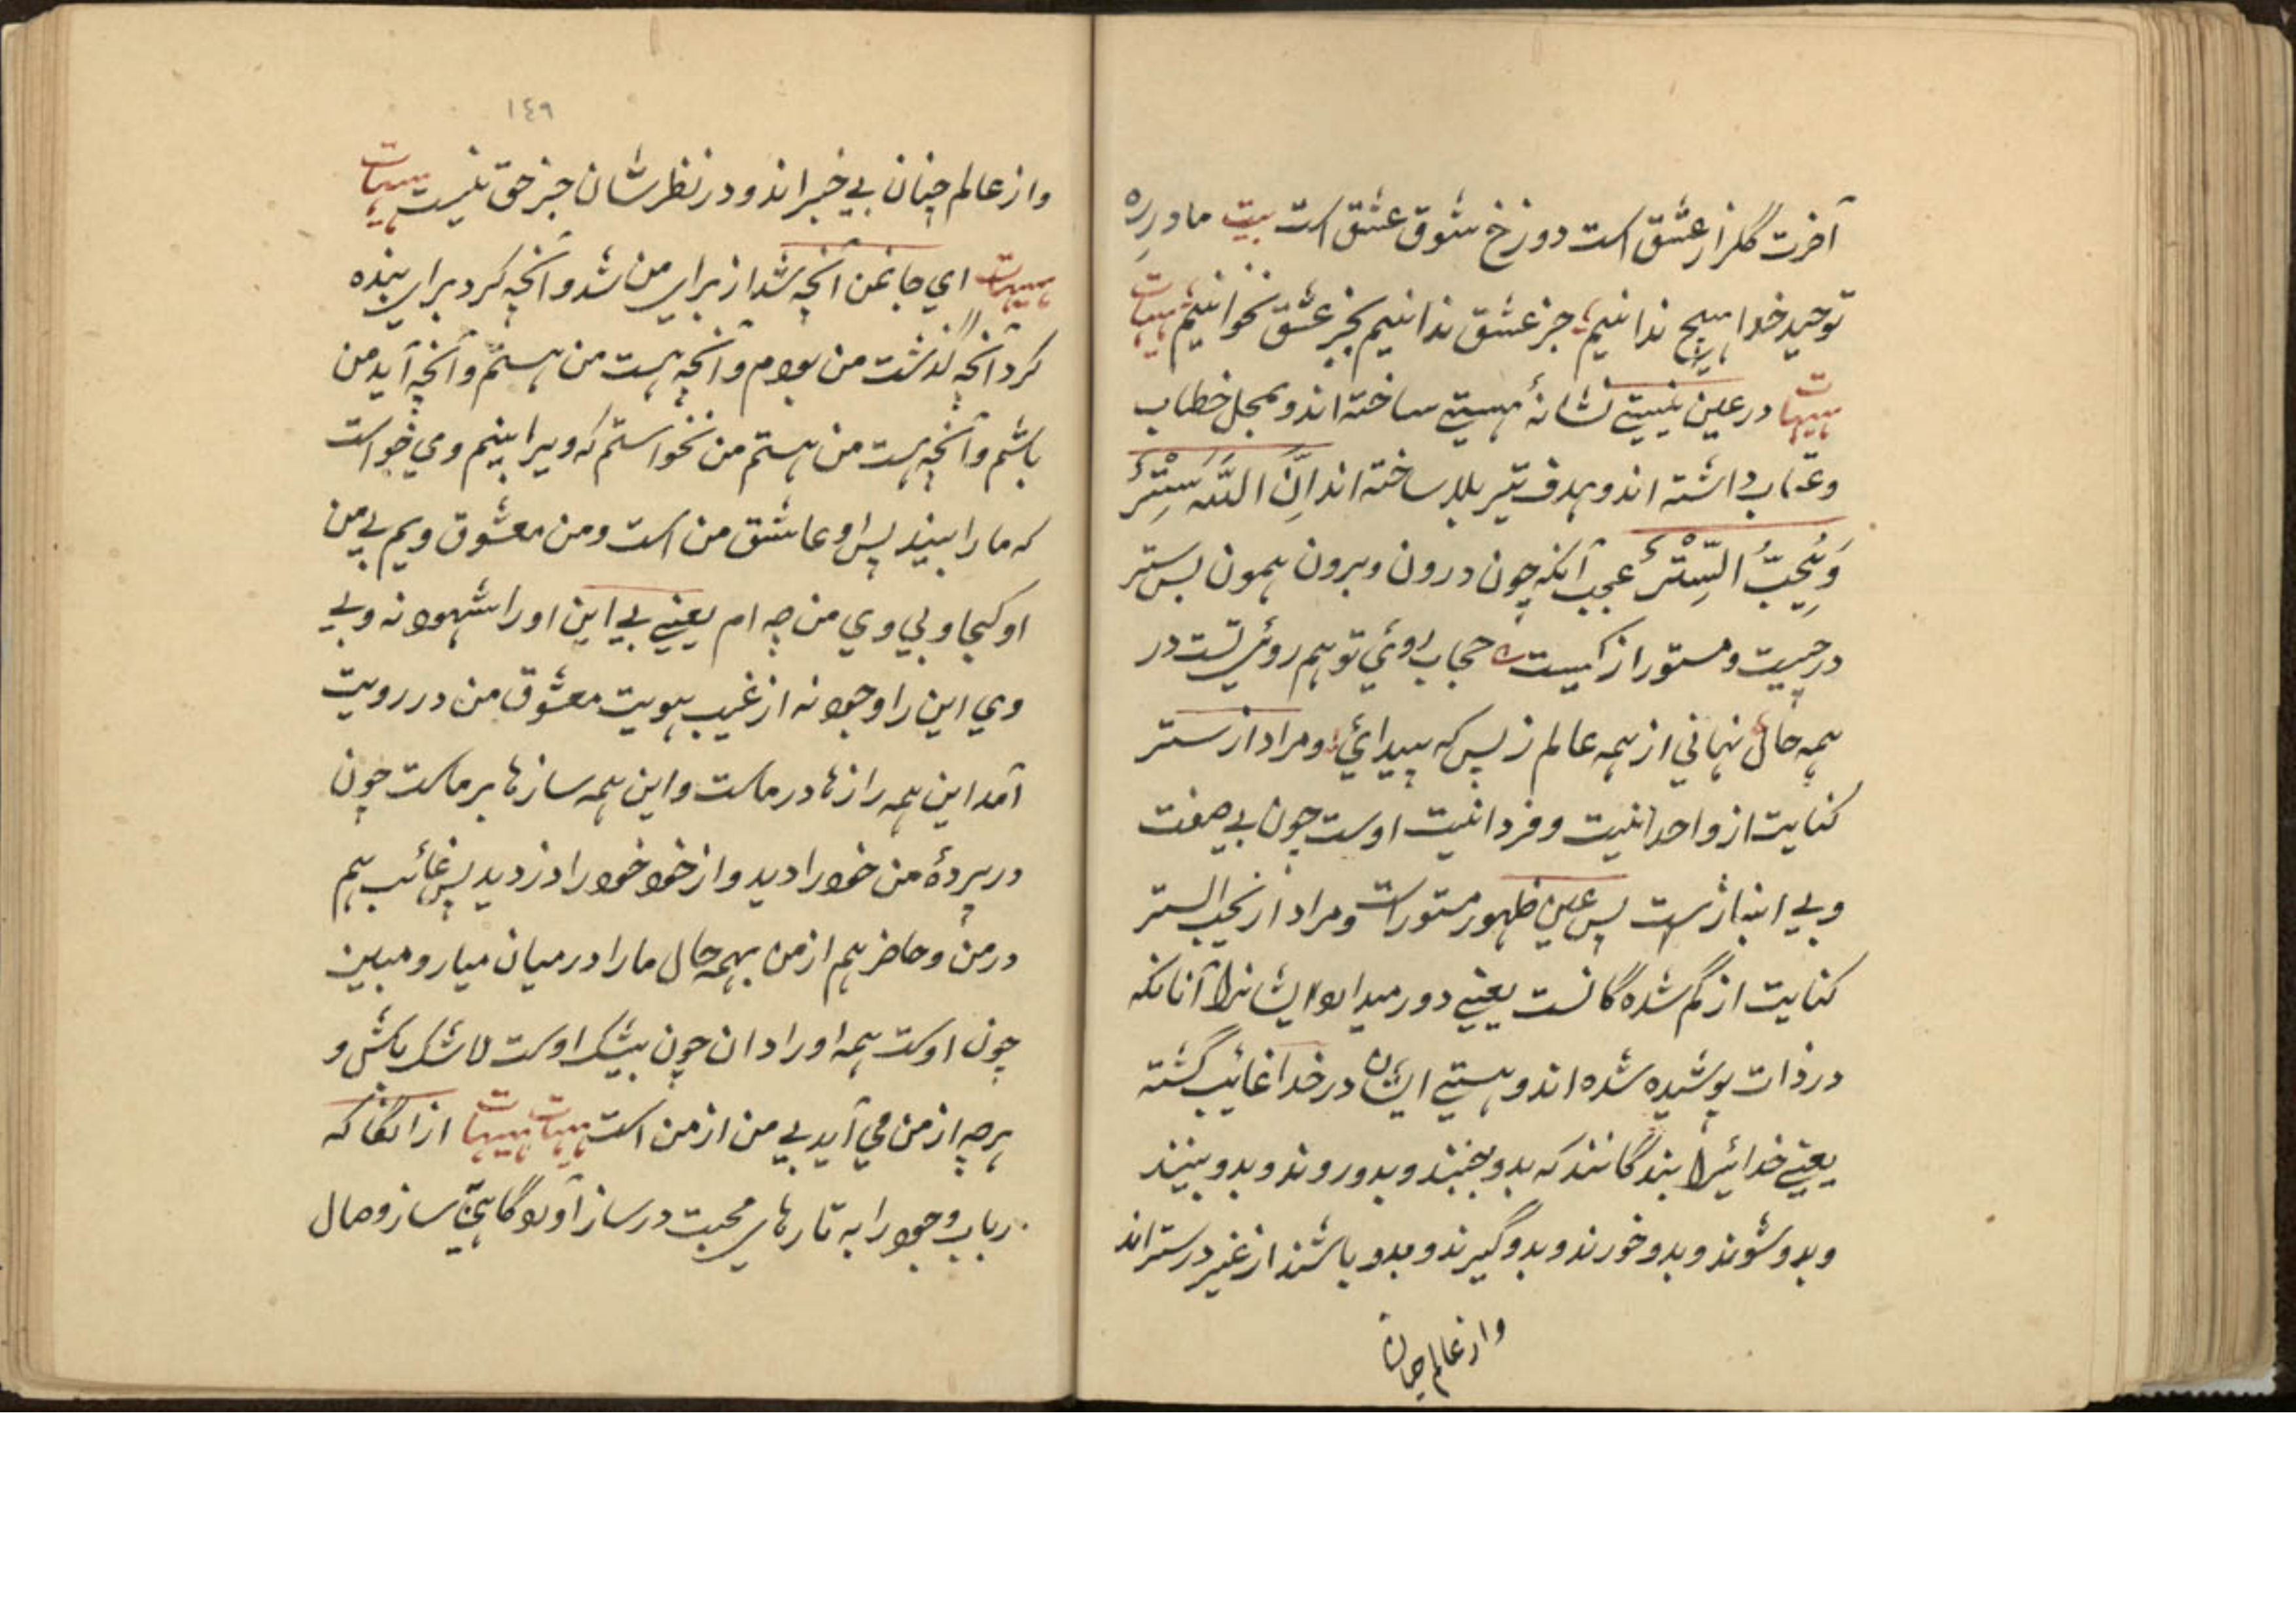 آخرت گلزار عشق است دوزخ شوق عشق است بیت ما در ره
توحید خدا هیچ ندانیم جز عشق ندانیم بجز عشق نخوانیم هیهات
هیهات در عین نیستی نشانهٔ هستی ساخته اند و بمحل خطاب
وعتاب داشته اند و هدف تیر بلا ساخته اند اِنَّ اللّٰه سَتِّرٌ
وَیُحِبُّ السِّتْرَ عجب آنکه چون درون وبرون همون بس ستر
در چیست و مستور از کیست حجاب روئي تو هم روئي تست در
همه حال نهاني از همه عالم ز بس که پیدائي و مراد از ستر
کنایت از واحدانیت و فردانیت اوست چون بے صفت
وبے انبازست پس عین ظهور مستورات ومراد از یحب الستر
کنایت از گم شده گانست یعنے دور میدارد ایشانرا آنانکه
در ذات پوشیده شده اند و هستیے ایشان در خدا غائب گشته
یعنے خدائیرا بندگانند که بدو جنبند وبدو روند وبدو بینند
وبدو شوند وبدو خورند وبدو گیرند وبدو باشند از غیر در ستر اند
واز عالم چنان
١٤٩
واز عالم چنان بے خبر اند و در نظر شان جز حق نیست هیهات
هیهات اي جانمن آنچه شد از براي من شد وآنچه کرد براي بنده
کرد آنچه گذشت من بودم وآنچه هست من هستم وآنچه آید من
باشم وآنچه هست من هستم من نخواستم که ویرا بینم وي خواست
که مارا بیند پس او عاشق من است ومن معشوق ویم بے من
او کجا و بي وي من چه ام یعنے بے این او را شهود نه وبے
وي این را وجود نه از غیب هویت معشوق من در رویت
آمد این همه رازها در ماست واین همه سازها بر ماست چون
در پردهٔ من خود را دید واز خود خود را دزدید پس غائب هم
در من وحاضر هم از من بهمه حال مارا در میان میار و مبین
چون اوست همه اورا دان چون بیشک اوست لا شک باش و
هرچه از من مي آید بے من از من است هیهات هیهات ازانگاه که
رباب وجود را به تارهاي محبت در ساز آورد گاهے ساز وصال